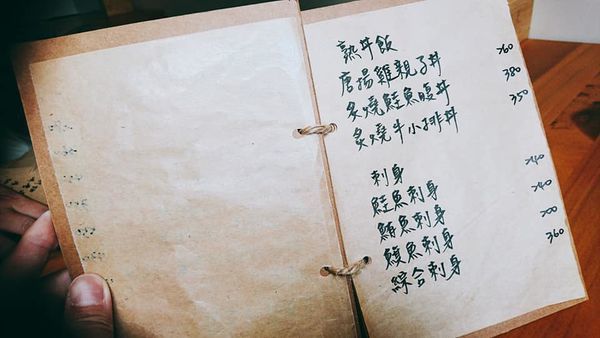 熟丼飯
唐揚雞親子丼 260
炙燒鮭魚腹丼 380
炙燒牛小排丼 350
刺身
鮭魚刺身 240
鮪魚刺身 240
魚刺身 200
綜合刺身 360